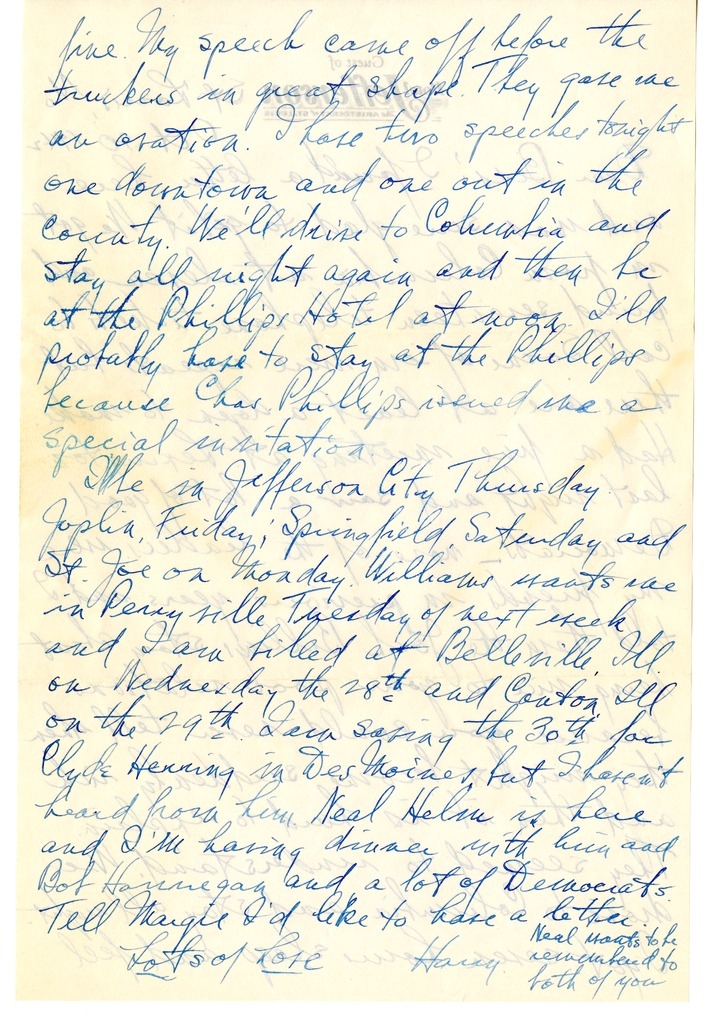 fine. My speech came off before the
truckers in great shape. They gave me
an ovation. I have two speeches tonight
one downtown and one out in the
county. We'll drive to Columbia and
stay all night again and then be
at the Phillips Hotel at noon. I'll
probably have to stay at the Phillips
because Chas. Phillips issued me a
special invitation.
I'll be in Jefferson City Thursday
Joplin, Friday; Springfield, Saturday and
St. Joe on Monday. Williams wants me
in Perryville Tuesday of next week
and I am billed at Belleville, Ill.
on Wednesday the 28th and Canton, Ill
on the 29th. I am saving the 30th for
Clyde Herring in Des Moines, but I haven't
heard from him. Neal Helm is here
and I'm having dinner with him and
Bob Hannegan and a lot of Democrats.
Tell Margie I'd like to have a letter.
Lots of Love Harry
Neal wants to be
remembered to
both of you